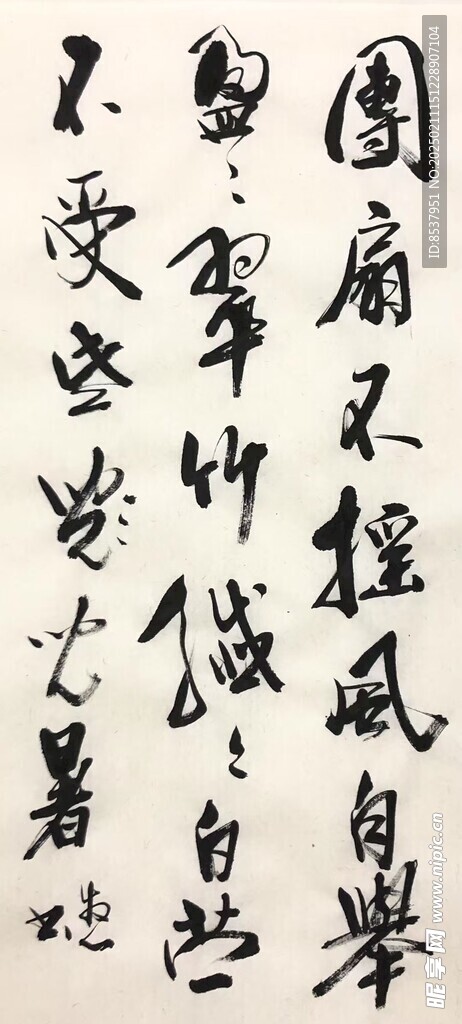 團扇不摇風自舉
盈〻翠竹纖〻白苎
不受些兒〻兒暑
ID:8537951 NO:20250211151228907104
昵享网 www.nipic.cn